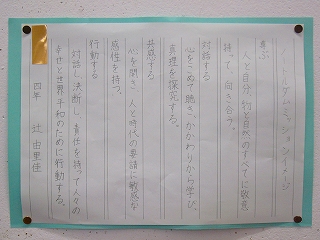 ノートルダムミッションイメージ
尊ぶ
人と自分、物と自然のすべてに敬意
持って、向き合う。
対話する
心をこめて聴き、かかわりから学び、
真理を探究する。
共感する
心を開き、人と時代の要請に敏感な
感性を持つ。
行動する
対話し、決断し、責任を持って人々の
幸せと世界平和のために行動する。
四年 辻 由里佳